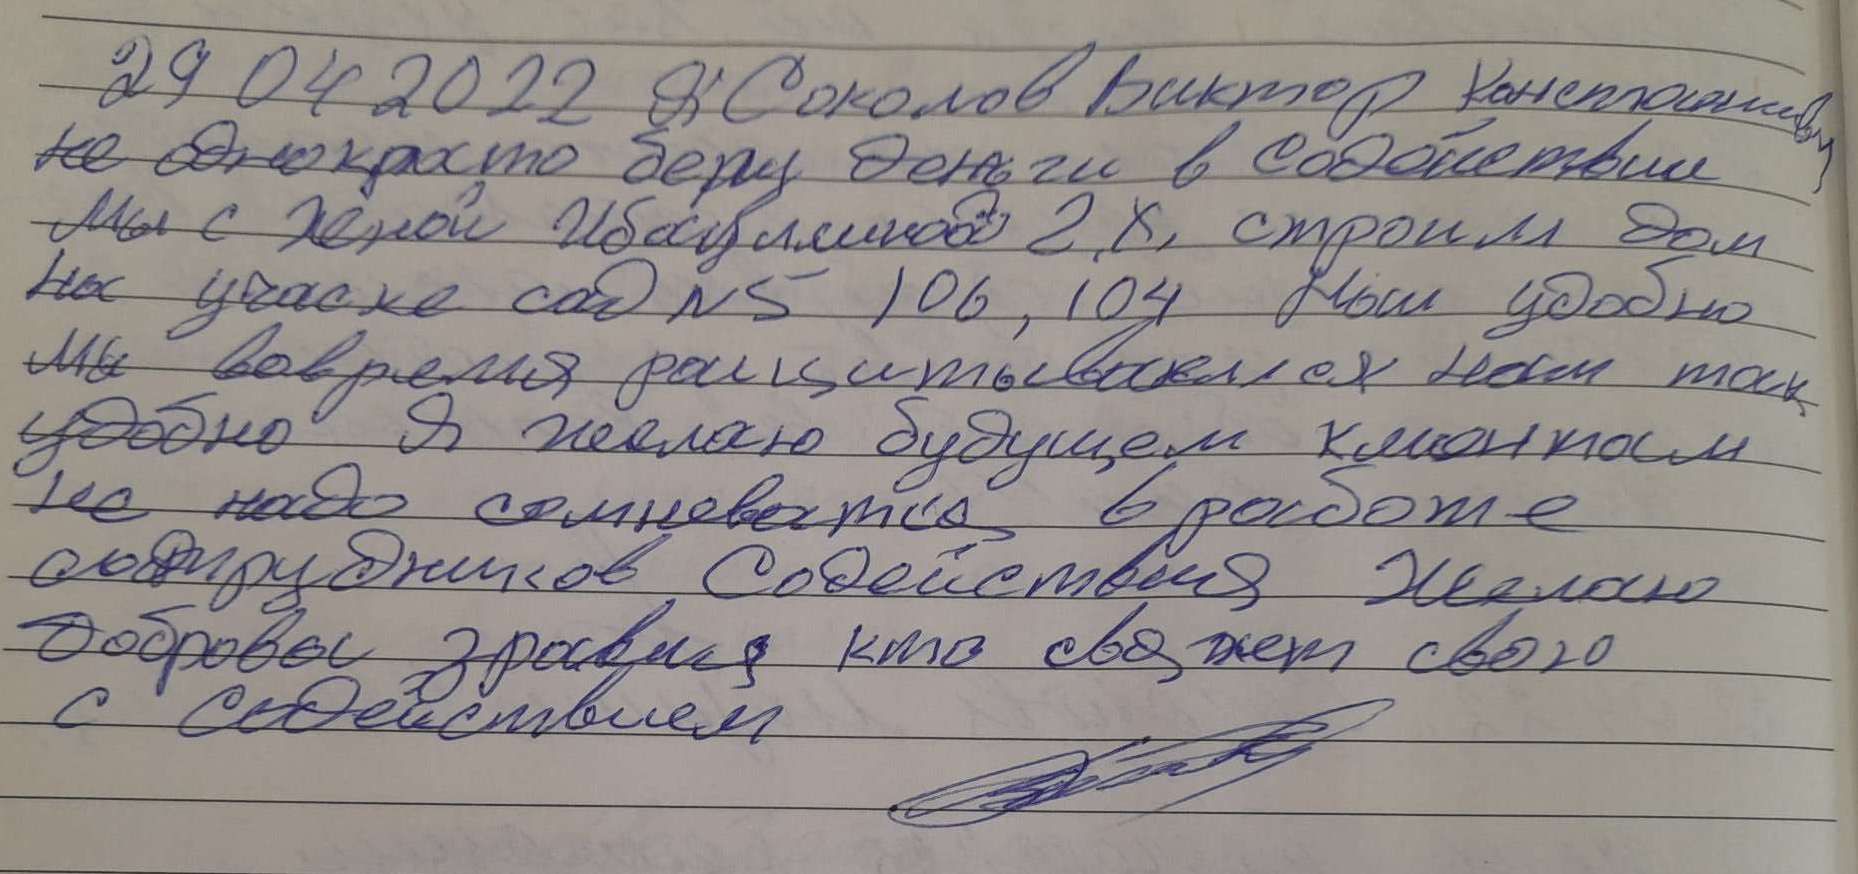 29 04 2022 Я; Соколов Виктор Константинович
не однократо беру деньги в Содействии
Мы с женой 2. Х. строим дом
На участке сад N5 106, 104 Ным удобно
Мы вовремя ращитываемся нам так
удобно Я желаю будущем клиентам
Не надо сомневатся в работе
сотрудников Содействия Желаю
Доброва зравия кто свяжет свою
с Содействием